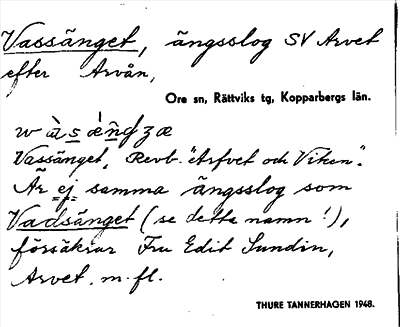 Vassänget, ängsslog SV Arvet
efter Arvån,
Ore sn, Rättviks tg, Kopparbergs län.
Vassänget, Revb. "Arfvet och Viken".
Är ej samma ängsslog som
Vadsänget (se detta namn!),
försäkrar Fru Edit Sundin,
Arvet, m.fl.
THURE TANNERHAGEN 1948.